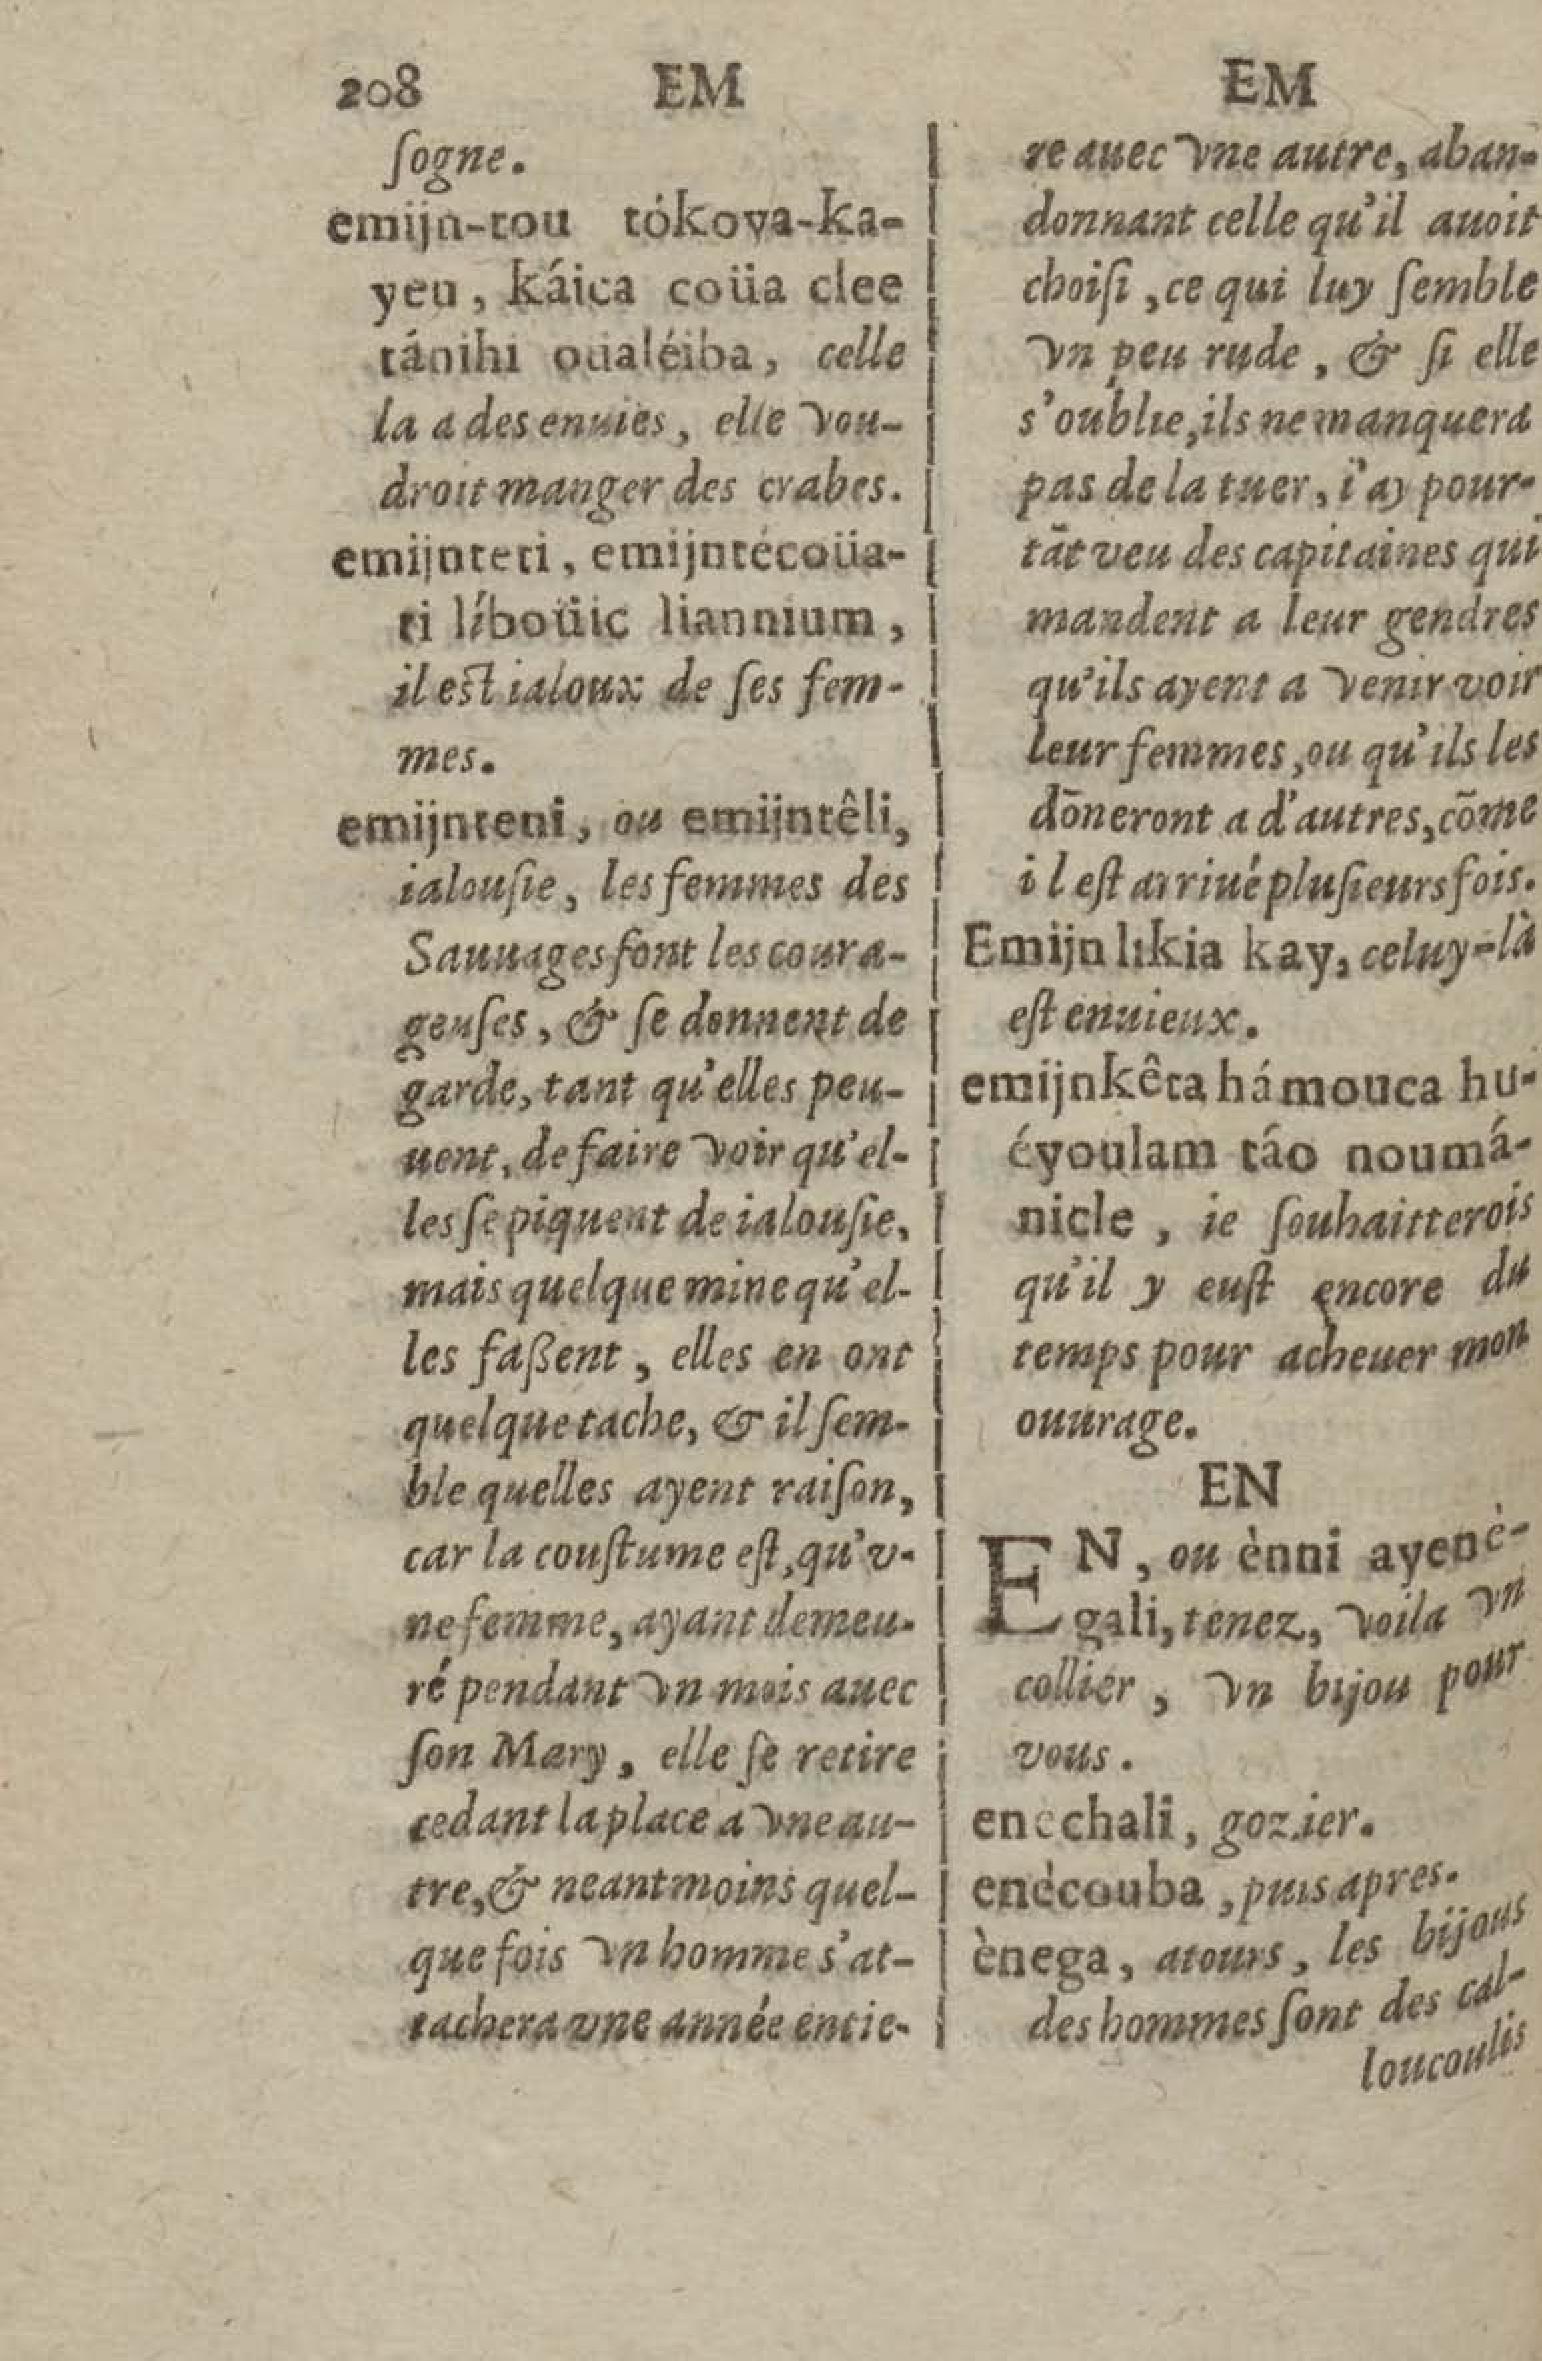 208 EM EM
ſogne.
emijn-tou tókoya-ka-
yeu, káica coüa clee
tánihi oualéiba, celle
la a des enuies, elle vou-
droit manger des crabes.
emijnteti, emijntécoüa-
ti líboüic liannium,
il est ialoux de ſes fem-
mes.
emijnteni, ou emijntêli,
ialouſie, les femmes des
Sauuages font les coura-
geuſes, & ſe donnent de
garde, tant qu'elles peu-
uent, de faire voir qu'el-
les ſe piquent de ialouſie,
mais quelque mine qu'el-
les faßent, elles en ont
quelque tache, & il ſem-
ble quelles ayent raiſon,
car la couſtume eſt, qu'v-
ne femme, ayant demeu-
ré pendant vn mois auec
ſon Mary, elle ſe retire
cedant la place a vne au-
tre, & neantmoins quel-
que fois vn homme s'at-
tachera vne année entie-
re auec vne autre, aban-
donnant celle qu'il auoit
choiſi, ce qui luy ſemble
vn peu rude, & ſi elle
s'oublie, ils ne manquera
pas de la tuer, i'ay pour-
tāt veu des capitaines qui
mandent a leur gendres
qu'ils ayent a venir voir
leur femmes, ou qu'ils les
dōneront a d'autres, cōme
i l eſt arriué pluſieurs fois.
Emijn likia kay, celuy-là
eſt enuieux.
emijnkêta hámouca hu-
éyoulam táo noumá-
nicle, ie ſouhaitterois
qu'il y euſt encore du
temps pour acheuer mon
ouurage.
EN
EN, ou ènni ayenè-
gali, tenez, voila vn
collier, vn bijou pour
vous.
enechali, gozier.
enècouba, puis apres.
ènega, atours, les bijous
des hommes ſont des cal-
loucoulis